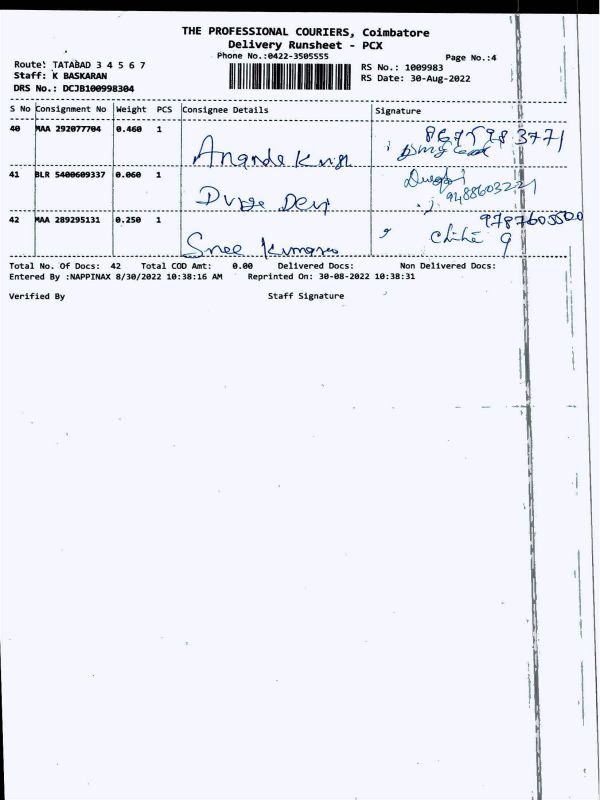 THE PROFESSIONAL COURIERS, Coimbatore
Delivery Runsheet - PCX
Phone No.:0422-3505555
Page No.:4
Route: TATABAD 3 4 5 6 7
RS No.: 1009983
Staff: K BASKARAN
RS Date: 30-Aug-2022
DRS No.: DCJB100998304
S No Consignment No Weight PCS Consignee Details Signature
40 MAA 292077704 0.460 1
41 BLR 5400609337 0.060 1
Devi
42 MAA 289295131 0.250 1 9787605500
Sree
Total No. Of Docs: 42 Total COD Amt: 0.00 Delivered Docs: Non Delivered Docs:
Entered By :NAPPINAX 8/30/2022 10:38:16 AM Reprinted On: 30-08-2022 10:38:31
Verified By Staff Signature